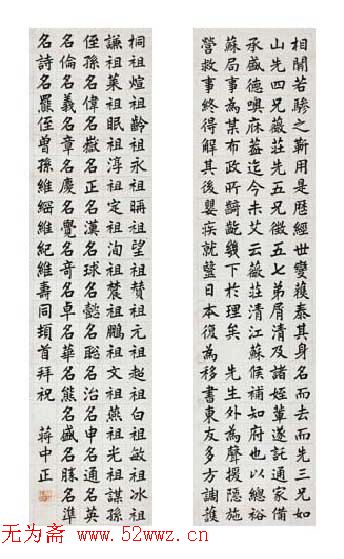 相聞若驂之靳用是歷經世變獲泰其身名而去而先三兄如
山先四兄薇莊先五兄徵五七弟屑清及諸姪輩遂託通家備
承盛德噢庥蓋迄今未艾云薇莊清江蘇候補知府也以總裕
蘇局事為某布政所齮齕幾下於理矣 先生外為聲援隱施
營救事終得解其後嬰疾就毉日本復為移書東友多方調護
桐祖煊祖齡祖永祖祖望祖贊祖元祖超祖白祖敏祖冰祖
謙祖萊祖眠祖淳祖定祖洵祖農祖鵬祖文祖燕祖光祖謀孫
姪孫名偉名嶽名正名漢名球名懿名聡名治名申名通名英
名倫名義名章名慶名覺名奇名卓名華名熊名盛名勝名準
名詩名羆姪曾孫維維紀維壽同頓首拜祝 蔣中正
无为斋 www.52wwz.cn